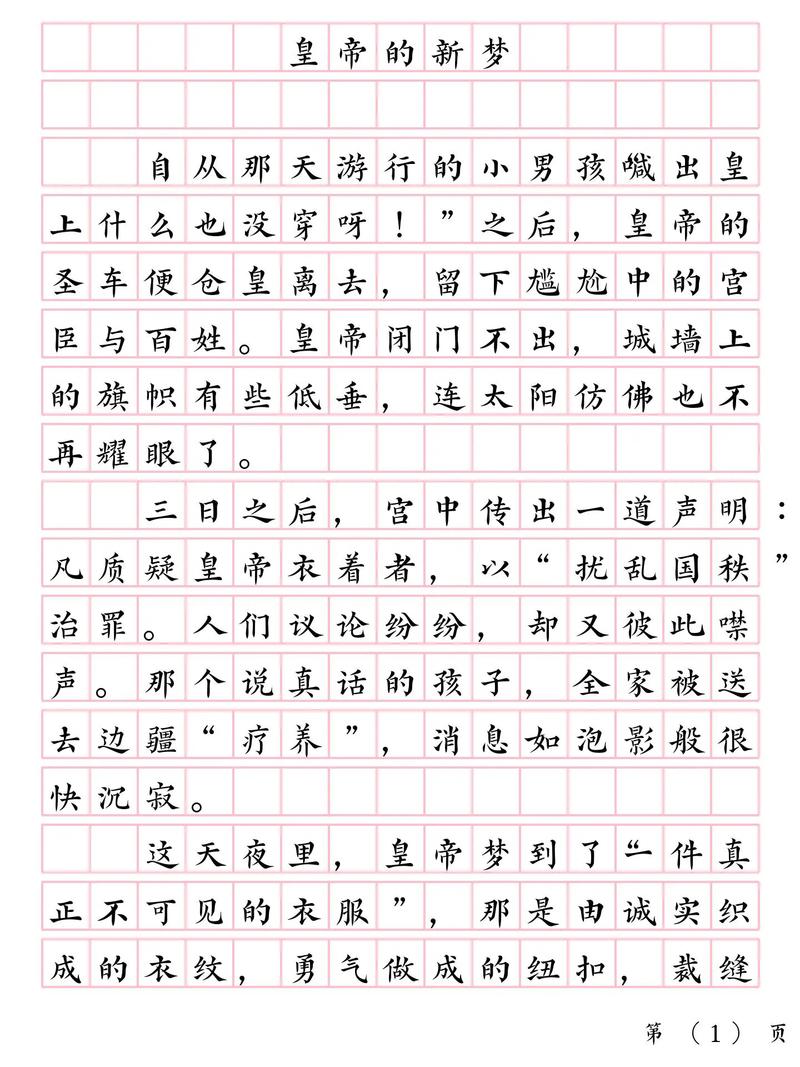 皇帝的新梦
自从那天游行的小男孩喊出皇
上什么也没穿呀！”之后，皇帝的
圣车便仓皇离去，留下尴尬中的宫
臣与百姓。皇帝闭门不出，城墙上
的旗帜有些低垂，连太阳仿佛也不
再耀眼了。
三日之后，宫中传出一道声明：
凡质疑皇帝衣着者，以“扰乱国秩”
治罪。人们议论纷纷，却又彼此噤
声。那个说真话的孩子，全家被送
去边疆“疗养”，消息如泡影般很
快沉寂。
这天夜里，皇帝梦到了“一件真
正不可见的衣服”，那是由诚实织
成的衣纹，勇气做成的纽扣，裁缝
第（1）页